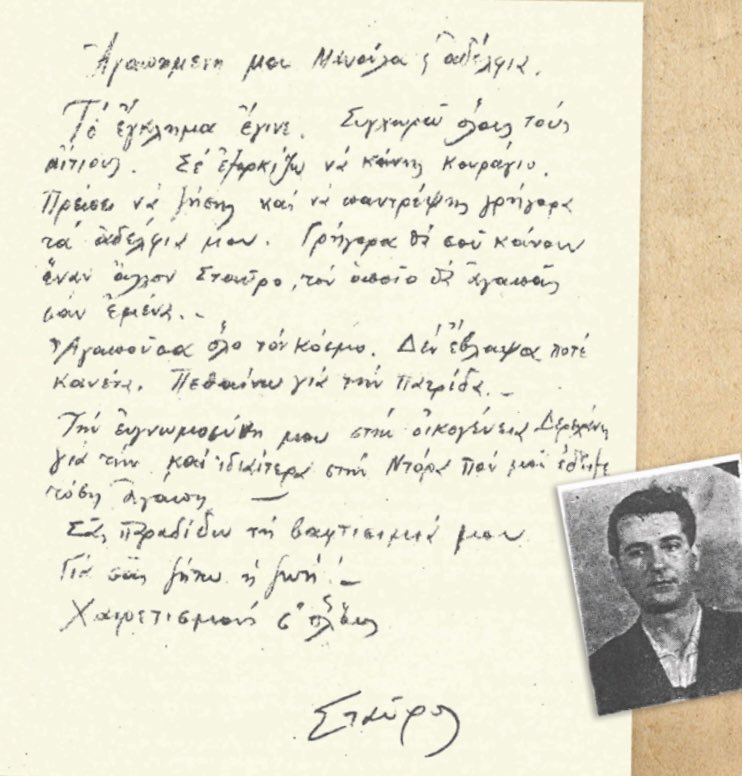 Ἀγαπημένη μου Μανούλα ϛ ἀδέλφια.
Τό ἔγκλημα ἔγινε. Συγχωρῶ ὅλους τούς
αἴτιους. Σέ ἐξορκίζω νά κάνῃς κουράγιο.
Πρέπει νά ζήσῃς καί νά παντρέψῃς γρήγορα
τά ἀδέλφια μου. Γρήγορα θά σοῦ κάνουν
ἕναν ἄλλον Σταῦρο, τόν ὁποῖο θά ἀγαπᾶς
σάν ἐμένα. –
Ἀγαποῦσα ὅλο τόν κόσμο. Δέν ἔβλαψα ποτέ
κανένα. Πεθαίνω γιά τήν Πατρίδα. –
Τήν εὐγνωμοσύνη μου στήν οἰκογένεια
γιά τήν καί ἰδιαίτερα στήν Ντόρα πού μοῦ ἔδειξε
τόση ἀγάπη —
Σᾶς παραδίδω τή βαφτισιμιά μου
Γιά σᾶς ζήτω ἡ ζωή! –
Χαιρετισμούς σ' ὅλους
Σταῦρος